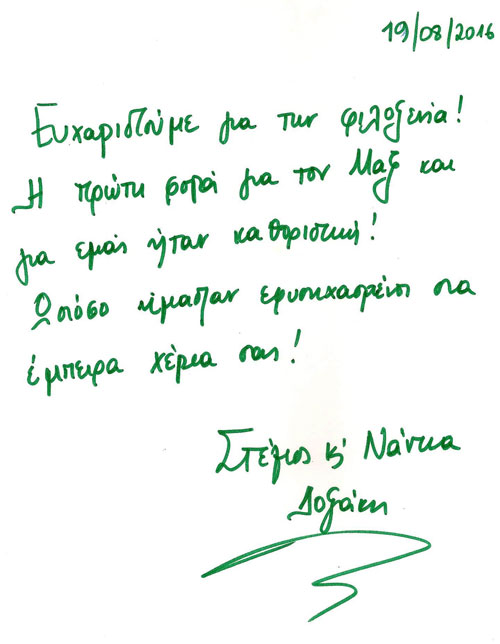 19/08/2016
Ευχαριστούμε για την φιλοξενία!
Η πρώτη φορά για τον Μαξ και
για εμάς ήταν καθοριστική!
Ωστόσο είμασταν εφησυχασμένοι στα
έμπειρα χέρια σας!
Στέλιος κ' Νάντια
Δοξάκη